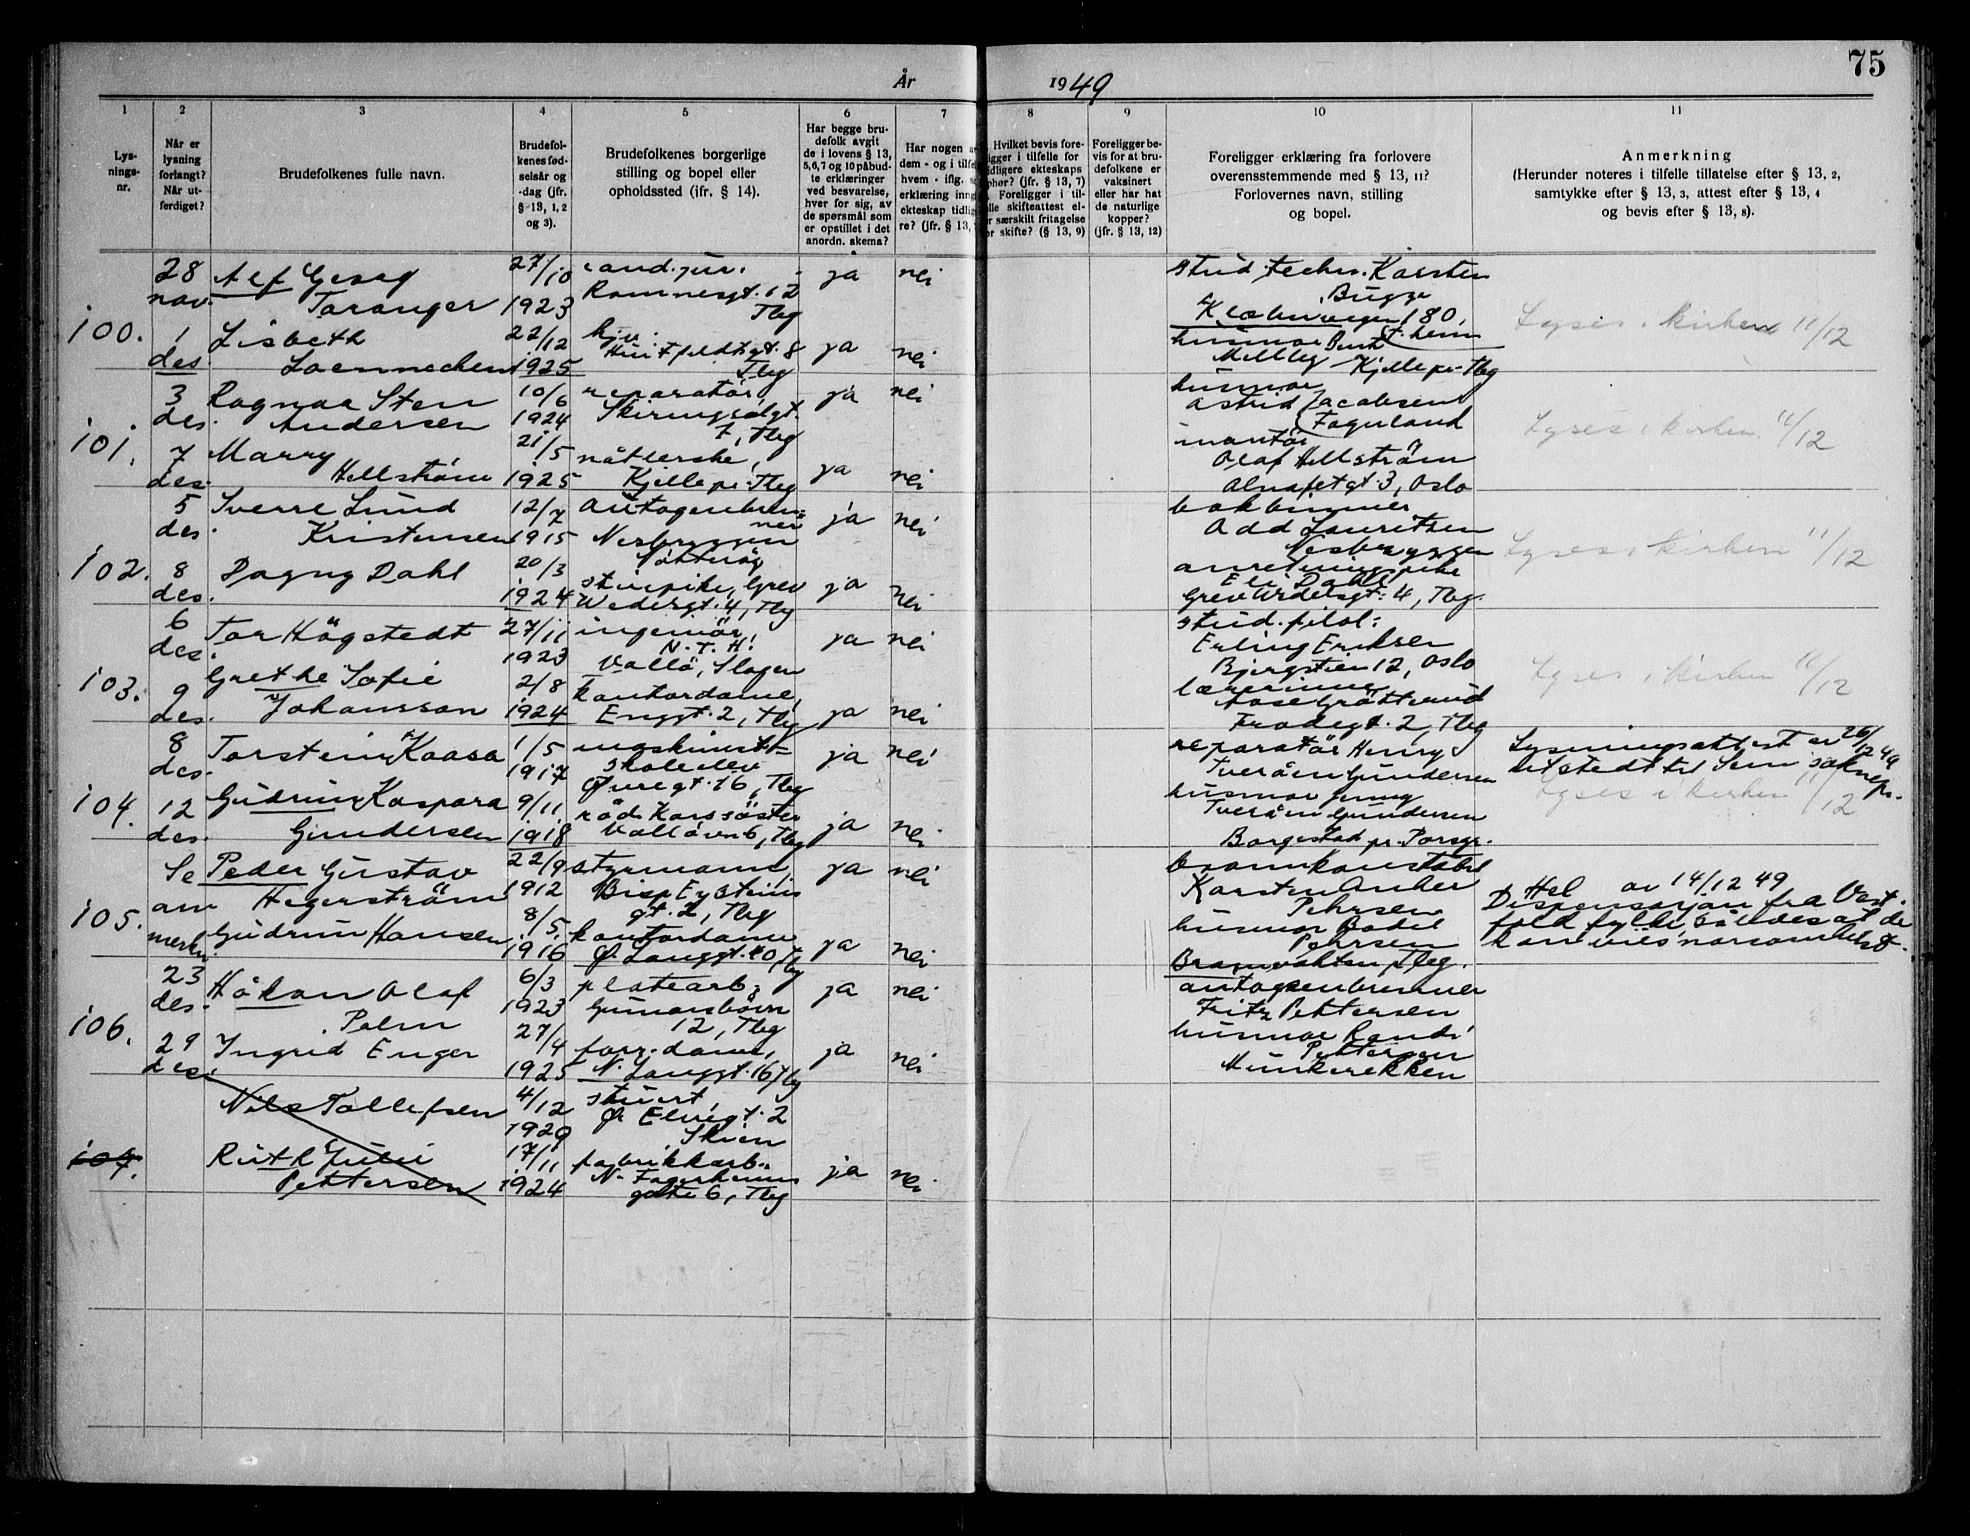 75
År 1949
1 2 3 4 5 6 7 8 9 10 11
Lys-
nings-
nr.
Når er
lysning
forlangt?
Når ut-
ferdiget?
Brudefolkenes fulle navn.
Brudefol-
kenes fød-
selsår og
-dag (jfr.
§ 13, 1, 2
og 3).
Brudefolkenes borgerlige
stilling og bopel eller
opholdssted (ifr. § 14).
Har begge bru-
defolk avgit
de i lovens § 13,
5,6,7 og 10 påbud-
te erklæringer
ved besvarelse,
hver for sig, av
de spørsmål som
er opstillet i det
anordn. skema?
Har nogen
dem - og i tilfe
hvem - iflg.
erklæring inng
ekteskap tidlig
re? (jfr. § 13,
Hvilket bevis fore-
ligger i tilfelle for
tidligere ekteskaps
ophør? (jfr. § 13, 7)
Foreligger i til-
felle skifteattest el-
er særskilt fritagelse
for skifte? (§ 13, 9)
Foreligger be-
vis for at bru-
defolkene er
vaksinert
eller har hat
de naturlige
kopper?
(jfr. § 13, 12)
Foreligger erklæring fra forlovere
overensstemmende med § 13, 11?
Forlovernes navn, stilling
og bopel.
Anmerkning
(Herunder noteres i tilfelle tillatelse efter § 13, 2,
samtykke efter § 13, 3, attest efter § 13, 4
og bevis efter § 13, 8).
100.
28 nov.
Alf
Taranger
27/10 1923
cand. jur.
12
Tbg
ja nei
stud. techn. Karsten
Bugge
180,
1 des.
Lisbeth
22/12 1925
8
Tbg
ja nei
husmor
Kjelle pr. Tbg
Lyses i kirken 11/12
101.
3 des.
Ragnar Sten
Andersen
10/6 1924
reparatör
Tbg
ja nei
husmor
Astrid Jacobsen
Fagerland
7 des.
Marry
Hellström
21/5 1925
nåtlerske,
Kjelle pr. Tbg
ja nei
montör
Olaf Hellström
3, Oslo
Lyses i kirken 11/12
102.
5 des.
Sverre Lund
Kristensen
12/7 1915
Autogenbren-
ner
Nesbryggen
Nötteröy
ja nei
bokbinner
Odd Lauritzen
Nesbryggen
8 des.
Dagny Dahl
20/3 1924
Grev
Wedelsgt. 4, Tbg
ja nei
Eli Dahl
Grev Wedelsgt. 4, Tbg.
Lyses i kirken 11/12
103.
6 des.
Tor Högstedt
27/11 1923
ingeniör,
N.T.H.
Vallö, Slagen
ja nei
stud. filol.
Erling Eriksen
12, Oslo
9 des.
Grethe Sofie
Johansson
2/8 1924
kontordame,
Enggt. 2, Tbg
ja nei
lærerinne
Aase
Frodegt. 2, Tbg
Lyses i kirken 11/12
104.
8 des.
Torstein Kaasa
1/5 1917
skoleelev
16, Tbg
ja nei
reparatör Henry
Tveråen Gundersen
12 des.
Gudrun Kaspara
Gundersen
9/11 1918
söster
6, Tbg
ja nei
husmor Jenny
Tveråen Gundersen
Borgestad pr. Porsgr.
Lysningsattest av 28/12 49
utstedt til Sem soknepr.
Lyses i kirken 11/12
105.
Se
an
merkn.
Peder Gustav
Hegerström
22/9 1912
styrmann,
Bisp Eysteins
gt. 2, Tbg
ja nei
brannkonstabel
Karsten
Pehrsen
Gudrun Hansen
8/5. 1916
kontordame
Ø. Langgt. 40, Tbg
ja nei
husmor Bodil
Pehrsen
Brannvakten, Tbg.
av 14/12 49
Dispensasjon fra Vest-
fold fylke, således at de
kan vies
106.
23 des.
Håkon Olaf
Palm
6/3 1923
platearb.
12, Tbg
ja nei
autogenbrenner
Fritz Pettersen
29 des.
Ingrid Enger
27/4 1925
forr. dame,
N. Langgt. 16, Tbg
ja nei
husmor Randi
Pettersen
Munkerekken
107.
Nils Tollefsen
4/12 1929
stuert,
Ø. Elvegt. 2
Skien
Ruth Julie
Pettersen
17/11 1924
fabrikkarb.
N. Fagerheims
gate 6, Tbg
ja nei